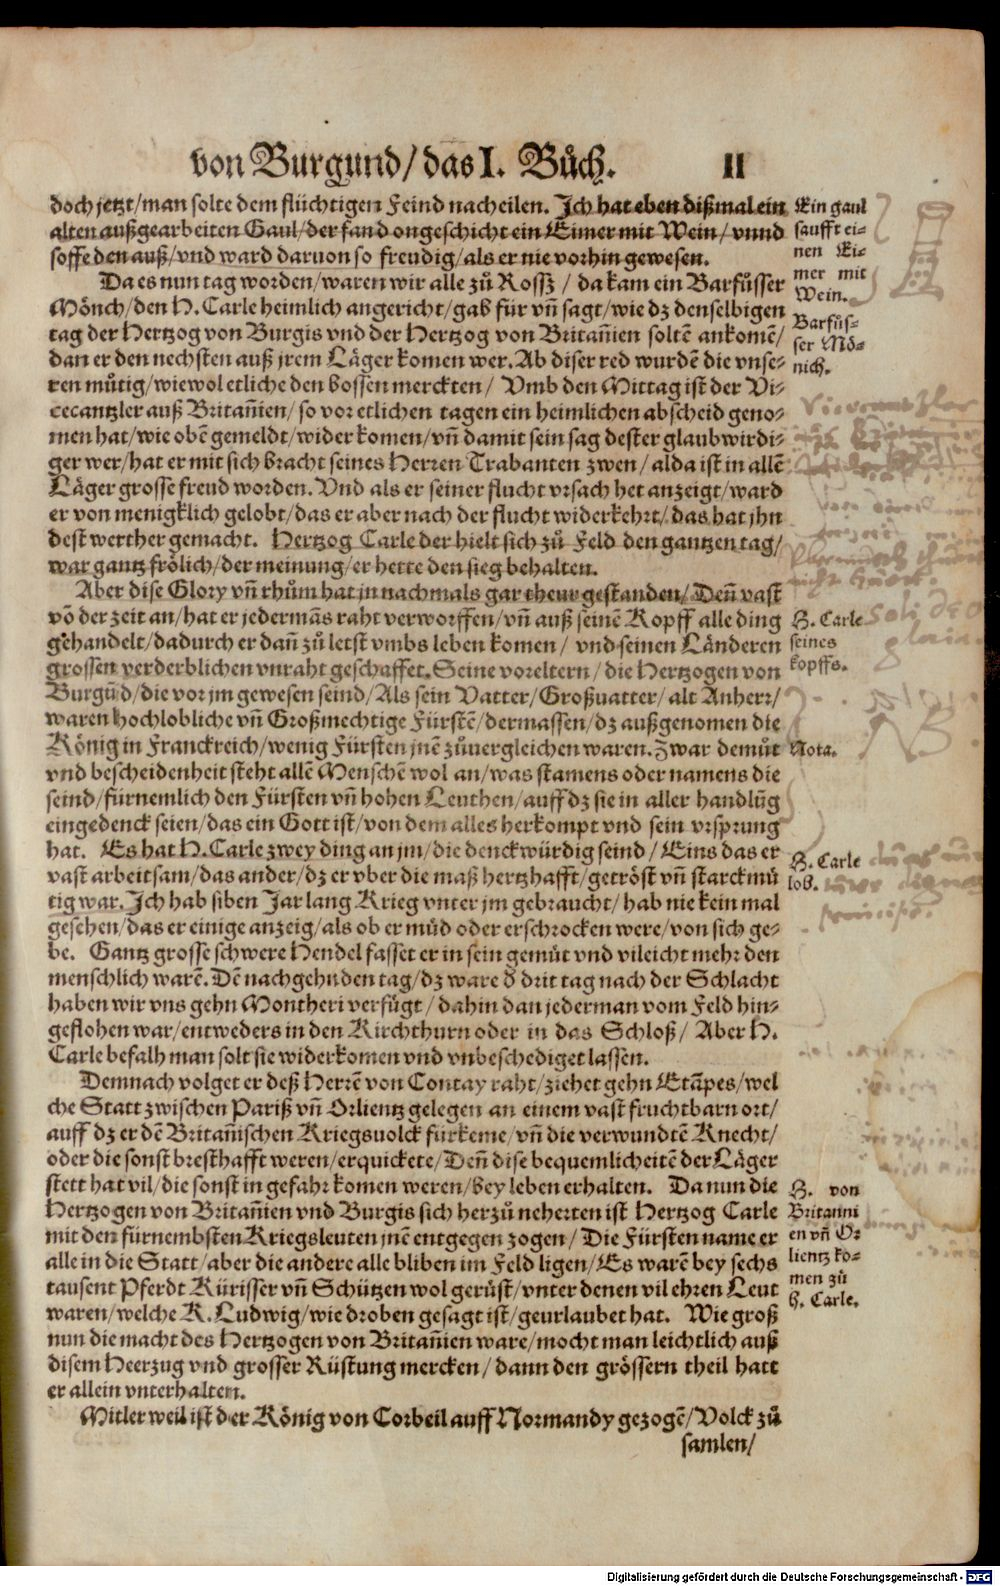 von Burgund/ das I. Bůch. 11
doch jetzt/ man solte dem flüchtigen Feind nacheilen. Ich hat eben dißmal ein
alten außgearbeiten Gaul/ der fand ongeschicht ein Eimer mit Wein/ vnnd
soffe den auß/ vnd ward daruon so freudig/ als er nie vorhin gewesen.
Ein gaul
saufft ei-
nen Ei-
mer mit
Wein.
Da es nun tag worden/ waren wir alle zů Rossz/ da kam ein Barfůsser
Mönch/ den H. Carle heimlich angericht/ gab für vñ sagt/ wie dz denselbigen
tag der Hertzog von Burgis vnd der Hertzog von Britañien soltē ankomē/
dan er den nechsten auß jrem Läger komen wer. Ab diser red wurdē die vnse-
ren můtig/ wiewol etliche den bossen merckten/ Vmb den Mittag ist der Vi-
cecantzler auß Britañien/ so vor etlichen tagen ein heimlichen abscheid geno-
men hat/ wie obē gemeldt/ wider komen/ vñ damit sein sag dester glaubwirdi-
ger wer/ hat er mit sich bracht seines Herren Trabanten zwen/ alda ist in allē
Läger grosse freud worden. Vnd als er seiner flucht vrsach het anzeigt/ ward
er von menigklich gelobt/ das er aber nach der flucht widerkehrt/ das hat jhn
dest werther gemacht. Hertzog Carle der hielt sich zů Feld den gantzen tag/
war gantz frölich/ der meinung/ er hette den sieg behalten.
Barfůs-
ser Mö-
nich.
Aber dise Glory vñ rhům hat jn nachmals gar theur gestanden/ Deñ vast
võ der zeit an/ hat er jedermãs raht verworffen/ vñ auß seinē Kopff alle ding
gehandelt/ dadurch er dañ zů letst vmbs leben komen/ vnd seinen Länderen
grossen verderblichen vnraht geschaffet. Seine voreltern/ die Hertzogen von
Burgũd/ die vor jm gewesen seind/ Als sein Vatter/ Großvatter/ alt Anherr/
waren hochlobliche vñ Großmechtige Fürstē/ dermassen/ dz außgenomen die
König in Franckreich/ wenig Fürsten jnē zůvergleichen waren. Zwar demůt
vnd bescheidenheit steht allē Menschē wol an/ was stamens oder namens die
seind/ fürnemlich den Fürsten vñ hohen Leuthen/ auff dz sie in aller handlũg
eingedenck seien/ das ein Gott ist/ von dem alles herkompt vnd sein vrsprung
hat. Es hat H. Carle zwey ding an jm/ die denckwürdig seind/ Eins das er
vast arbeitsam/ das ander/ dz er vber die maß hertzhafft/ getröst vñ starckmů
tig war. Ich hab siben Jar lang Krieg vnter jm gebraucht/ hab nie kein mal
gesehen/ das er einige anzeig/ als ob er můd oder erschrocken were/ von sich ge-
be. Gantz grosse schwere Hendel fasset er in sein gemůt vnd vileicht mehr den
menschlich warē. Dē nachgehnden tag/ dz ware d̕ drit tag nach der Schlacht
haben wir vns gehn Montheri verfůgt/ dahin dan jederman vom Feld hin-
geflohen war/ entweders in den Kirchthurn oder in das Schloß/ Aber H.
Carle befalh man solt sie widerkomen vnd vnbeschediget lassen.
H. Carle
seines
kopffs.
Soli deo
gloria.
Nota.
NB
H. Carle
lob.
principe.
Demnach volget er deß Herrē von Contay raht/ ziehet gehn Etãpes/ wel
che Statt zwischen Pariß vñ Orlientz gelegen an einem vast fruchtbarn ort/
auff dz er dē Britañischen Kriegsuolck fürkeme/ vñ die verwundtē Knecht/
oder die sonst bresthafft weren/ erquickete/ Deñ dise bequemlicheitē der Läger
stett hat vil/ die sonst in gefahr komen weren/ bey leben erhalten. Da nun die
Hertzogen von Britañien vnd Burgis sich herzů neherten ist Hertzog Carle
mit den fürnembsten Kriegsleuten jnē entgegen zogen/ Die Fürsten name er
alle in die Statt/ aber die andere alle bliben im Feld ligen/ Es warē bey sechs
tausent Pferdt Kürisser vñ Schützen wol gerüst/ vnter denen vil ehren Leut
waren/ welche K. Ludwig/ wie droben gesagt ist/ geurlaubet hat. Wie groß
nun die macht des Hertzogen von Britañien ware/ mocht man leichtlich auß
disem Heerzug vnd grosser Rüstung mercken/ dann den grössern theil hatt
er allein vnterhalten.
H. von
Britanni
en vñ Or
lientz ko-
men zů
H. Carle.
Mitler weil ist der König von Corbeil auff Normandy gezogē/ Volck zů
samlen/
Digitalisierung gefördert durch die Deutsche Forschungsgemeinschaft - DFG